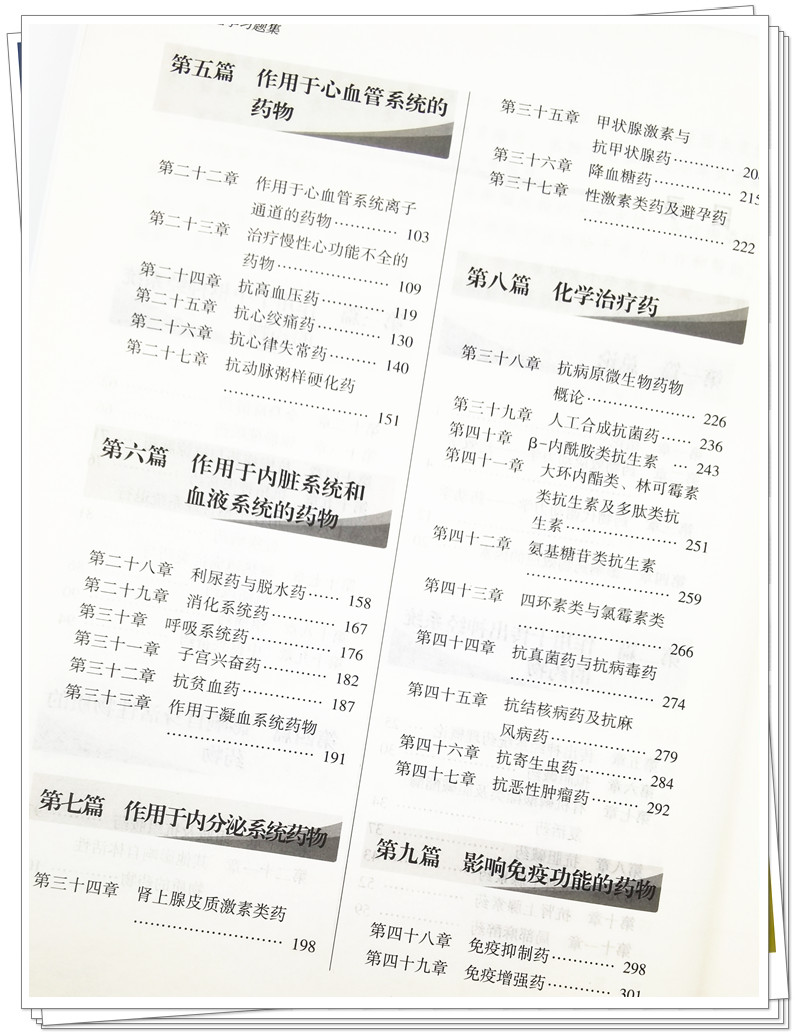 习题集
第五篇 作用于心血管系统的
药物
第二十二章 作用于心血管系统离子
通道的药物………… 103
第二十三章 治疗慢性心功能不全的
药物………………… 109
第二十四章 抗高血压药………… 119
第二十五章 抗心绞痛药………… 130
第二十六章 抗心律失常药……… 140
第二十七章 抗动脉粥样硬化药
……………………… 151
第六篇 作用于内脏系统和
血液系统的药物
第二十八章 利尿药与脱水药…… 158
第二十九章 消化系统药………… 167
第三十章 呼吸系统药………… 176
第三十一章 子宫兴奋药………… 182
第三十二章 抗贫血药…………… 187
第三十三章 作用于凝血系统药物
……………………… 191
第七篇 作用于内分泌系统药物
第三十四章 肾上腺皮质激素类药
……………………… 198
第三十五章 甲状腺激素与
抗甲状腺药…………
第三十六章 降血糖药…………… 215
第三十七章 性激素类药及避孕药
……………………… 222
第八篇 化学治疗药
第三十八章 抗病原微生物药物
概论………………… 226
第三十九章 人工合成抗菌药…… 236
第四十章 β-内酰胺类抗生素 … 243
第四十一章 大环内酯类、林可霉素
类抗生素及多肽类抗
生素………………… 251
第四十二章 氨基糖苷类抗生素
……………………… 259
第四十三章 四环素类与氯霉素类
……………………… 266
第四十四章 抗真菌药与抗病毒药
……………………… 274
第四十五章 抗结核病药及抗麻
风病药……………… 279
第四十六章 抗寄生虫药………… 284
第四十七章 抗恶性肿瘤药……… 292
第九篇 影响免疫功能的药物
第四十八章 免疫抑制药………… 298
第四十九章 免疫增强药………… 301